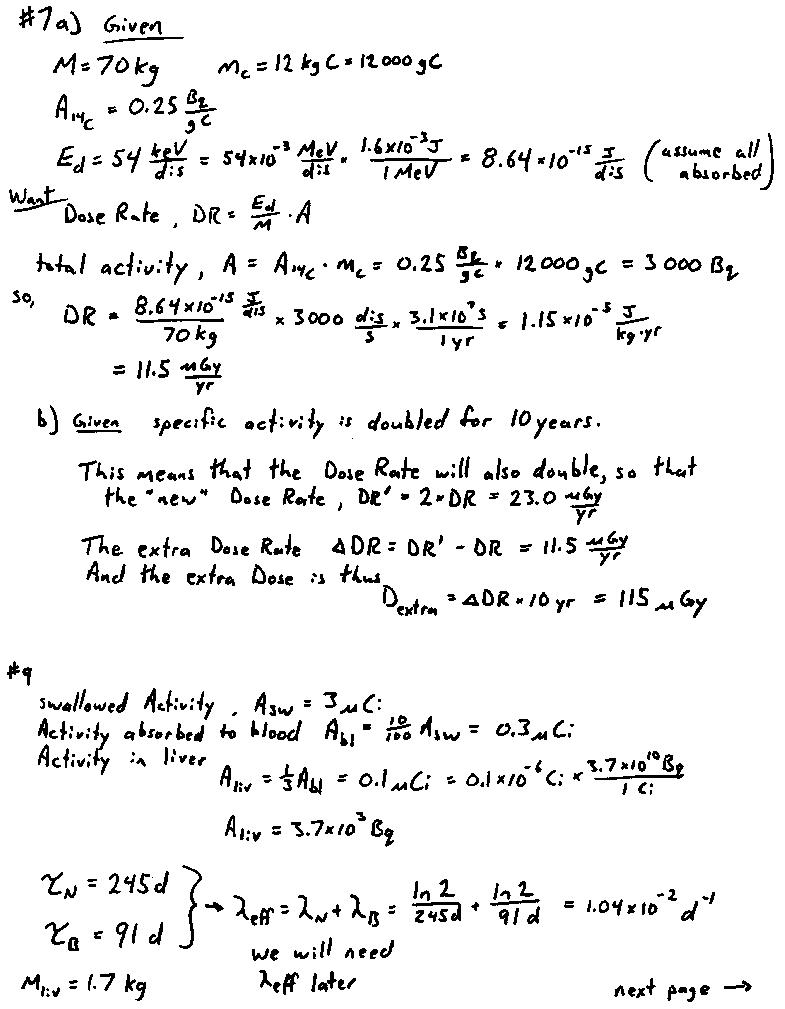 #7a) Given
M = 70 kg   m_c = 12 kg C = 12 000 gC
A_14C = 0.25 Bq/gC
E_d = 54 keV/dis = 54×10^-3 MeV/dis × 1.6×10^-13 J/1 MeV = 8.64×10^-15 J/dis (assume all absorbed)
Want
Dose Rate, DR = E_d/M · A
total activity, A = A_14C · m_c = 0.25 Bq/gC × 12 000 gC = 3 000 Bq
so,
DR = 8.64×10^-15 J/dis / 70 kg × 3000 dis/s × 3.1×10^7 s/1 yr = 1.15×10^-5 J/kg·yr
= 11.5 μGy/yr
b) Given specific activity is doubled for 10 years.
This means that the Dose Rate will also double, so that
the "new" Dose Rate, DR' = 2×DR = 23.0 μGy/yr
The extra Dose Rate ΔDR = DR' - DR = 11.5 μGy/yr
And the extra Dose is thus
D_extra = ΔDR × 10 yr = 115 μGy
#9
swallowed Activity, A_sw = 3 μCi
Activity absorbed to blood A_bl = 10/100 A_sw = 0.3 μCi
Activity in liver
A_liv = 1/3 A_bl = 0.1 μCi = 0.1×10^-6 Ci × 3.7×10^10 Bq/1 Ci
A_liv = 3.7×10^3 Bq
τ_N = 245 d
τ_B = 91 d
} → λ_eff = λ_N + λ_B = ln 2/245d + ln 2/91 d = 1.04×10^-2 d^-1
we will need
λeff later
M_liv = 1.7 kg
next page →